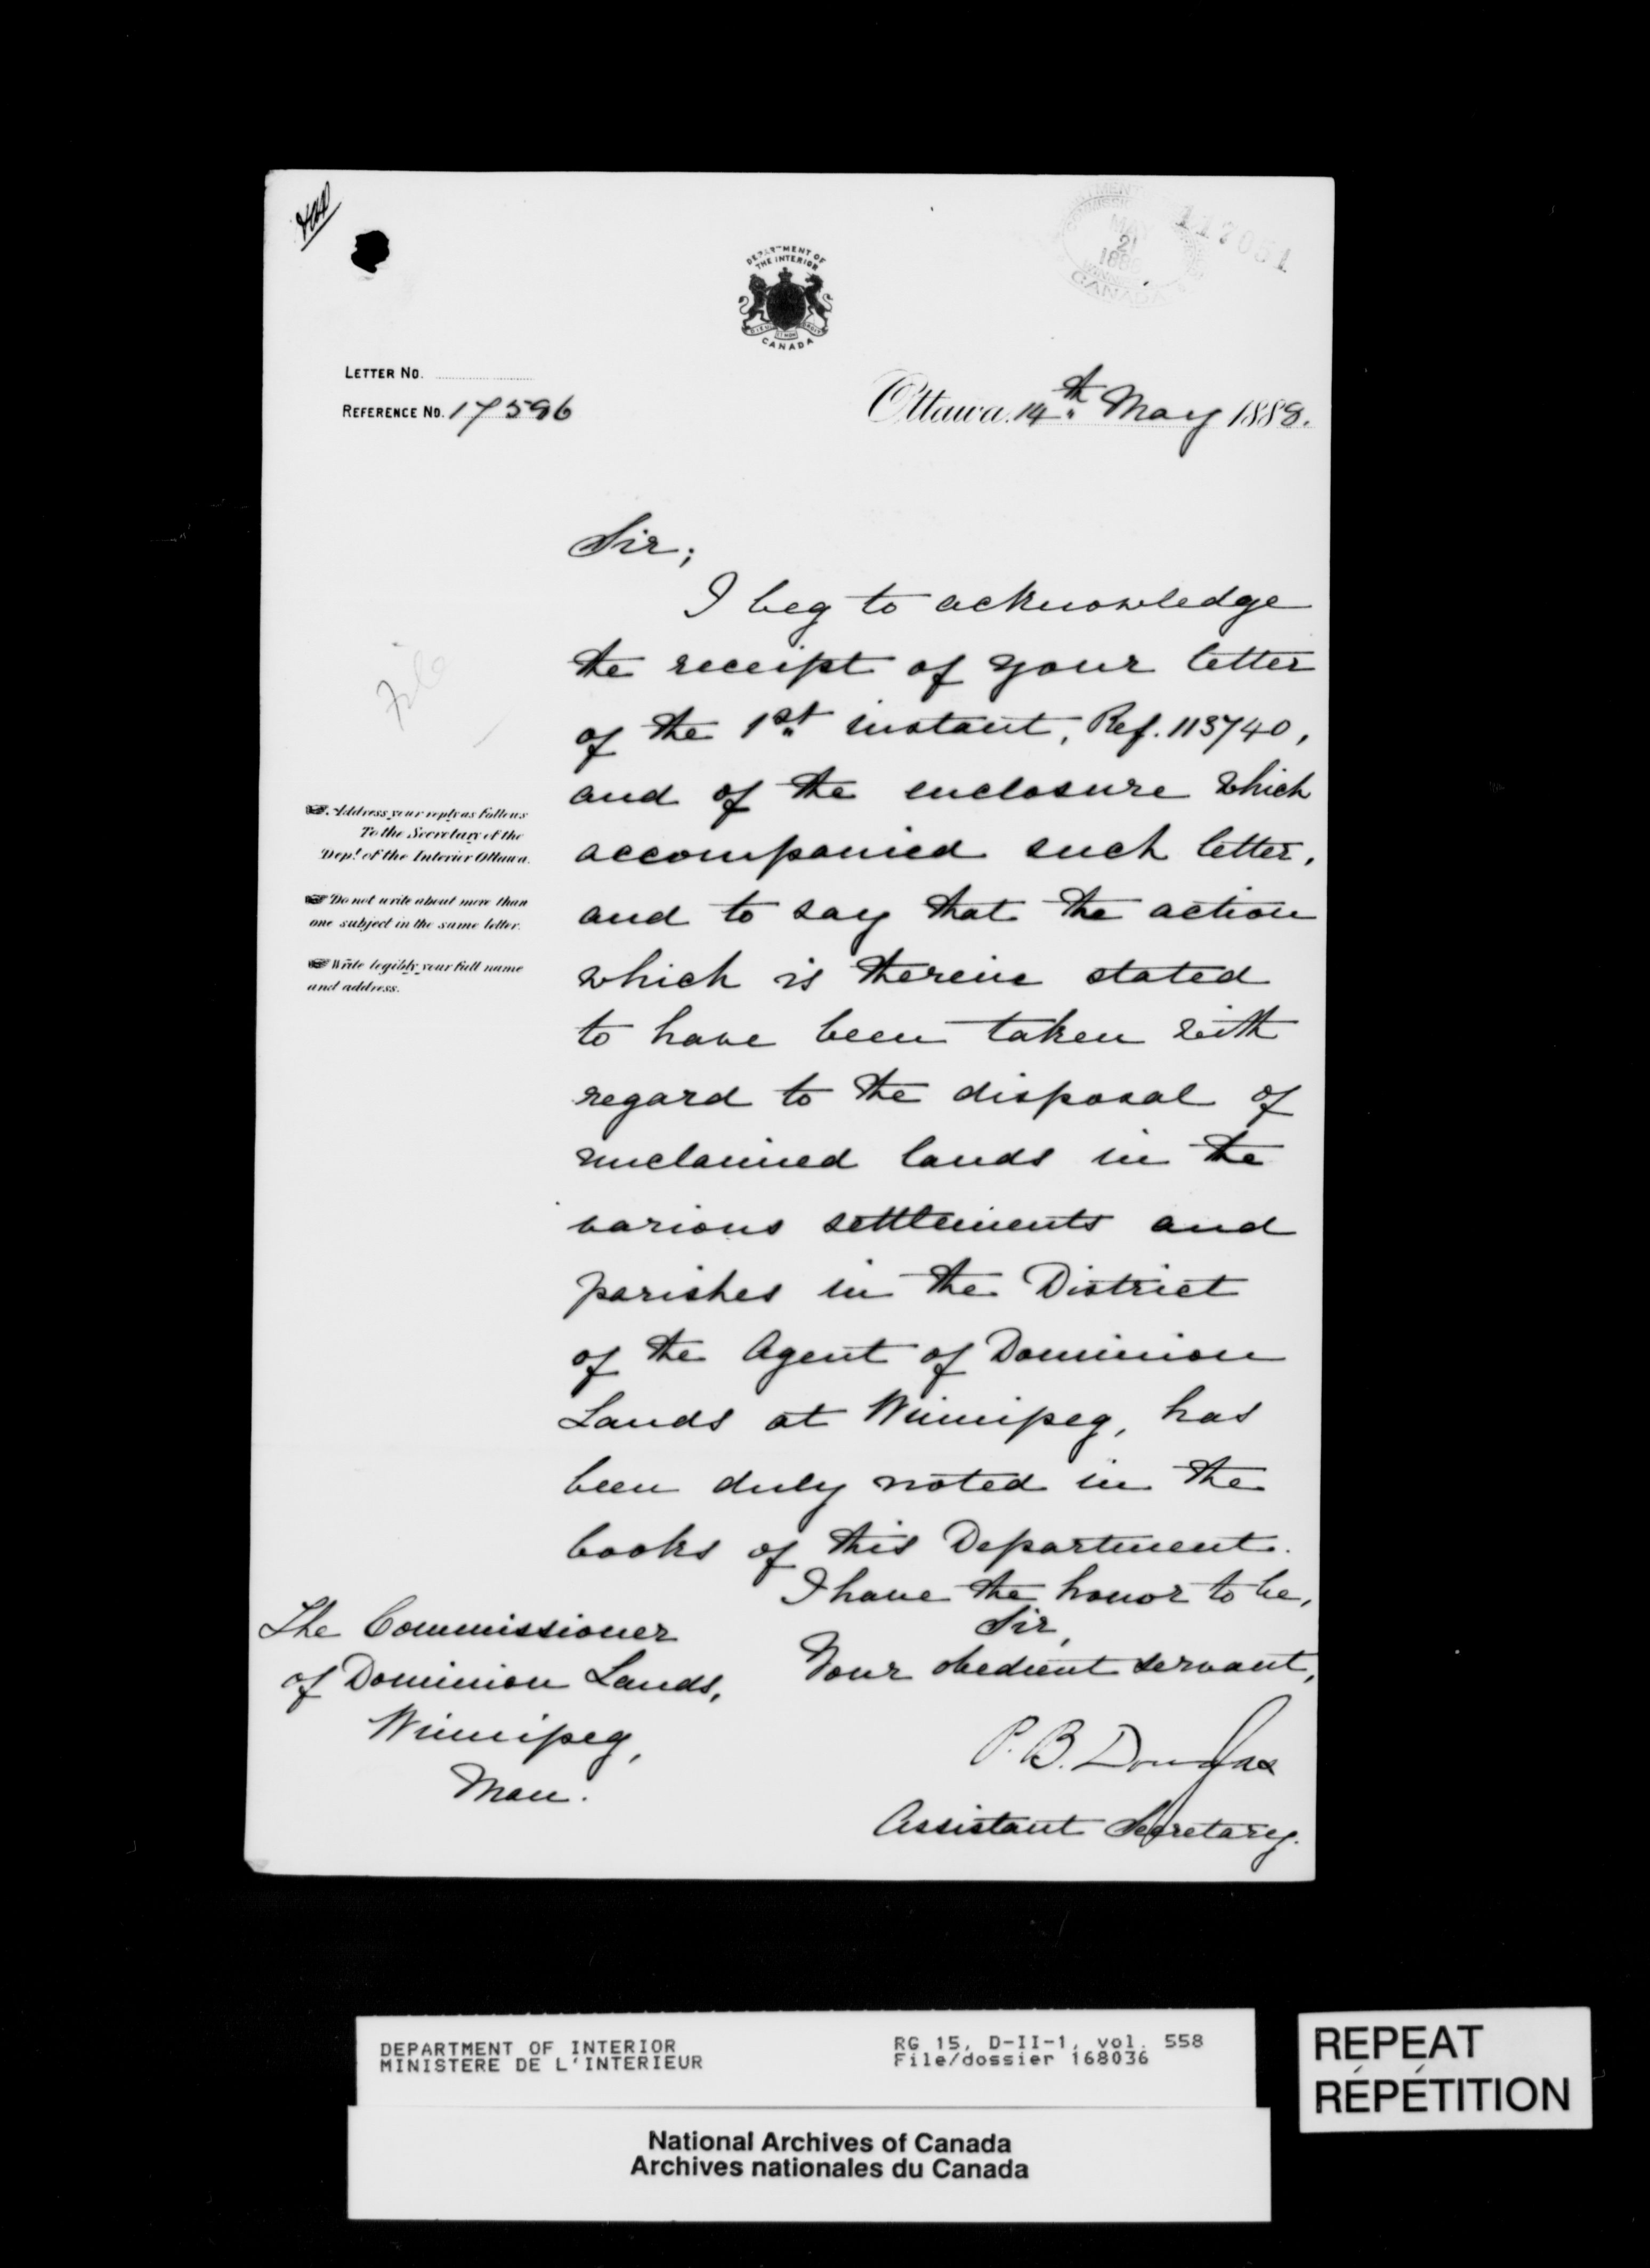 DEPARTMENT OF
THE INTERIOR
CANADA
MAY
21
1888
CANADA
117051
LETTER NO.
REFERENCE NO. 17596
Ottawa, 14th May 1888.
File
Sir;
I beg to acknowledge
the receipt of your letter
of the 1st instant, Ref. 113740,
and of the enclosure which
accompanied such letter,
and to say that the action
which is therein stated
to have been taken with
regard to the disposal of
unclaimed lands in the
various settlements and
parishes in the District
of the Agent of Dominion
Lands at Winnipeg, has
been duly noted in the
books of this Department.
I have the honor to be,
Sir,
Your obedient servant,
P. B. Douglas
Assistant Secretary.
The Commissioner
of Dominion Lands,
Winnipeg,
Man.
Address your reply as follows
To the Secretary of the
Dept. of the Interior Ottawa.
Do not write about more than
one subject in the same letter.
Write legibly your full name
and address.
DEPARTMENT OF INTERIOR
MINISTERE DE L'INTERIEUR
RG 15, D-II-1, vol. 558
File/dossier 168036
National Archives of Canada
Archives nationales du Canada
REPEAT
RÉPÉTITION